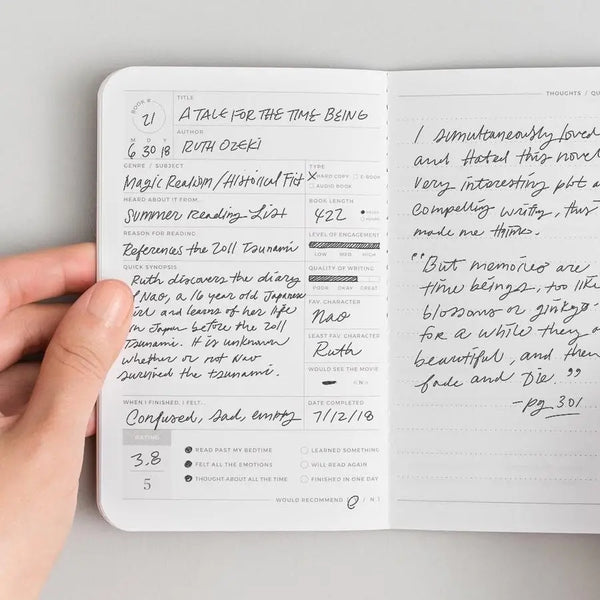 BOOK #
21
M D Y
6 30 18
TITLE
A TALE FOR THE TIME BEING
AUTHOR
RUTH OZEKI
GENRE / SUBJECT
Magic Realism / Historical Fict
TYPE
X HARD COPY E-BOOK
AUDIO BOOK
HEARD ABOUT IT FROM...
Summer Reading List
BOOK LENGTH
422
PAGES
HOURS
REASON FOR READING
References the 2011 Tsunami
LEVEL OF ENGAGEMENT
LOW MED HIGH
QUICK SYNOPSIS
Ruth discovers the diary
of Nao, a 16 year old Japanese
girl and learns of her life
in Japan before the 2011
Tsunami. It is unknown
whether or not Nao
survived the tsunami.
QUALITY OF WRITING
POOR OKAY EXCELLENT
FAV. CHARACTER
Nao
LEAST FAV. CHARACTER
Ruth
WOULD SEE THE MOVIE
WHEN I FINISHED, I FELT...
Confused, sad, empty
DATE COMPLETED
7/12/18
RATING
3.8
5
READ PAST MY BEDTIME
FELT ALL THE EMOTIONS
THOUGHT ABOUT ALL THE TIME
LEARNED SOMETHING
WILL READ AGAIN
FINISHED IN ONE DAY
WOULD RECOMMEND Y / N
THOUGHTS / QU
I simultaneously loved
and hated this novel
very interesting plot a
compelling writing, this
made me think.
"But memories are
time beings, too, like
blossoms or ginkgo
for a while they a
beautiful, and then
fade and die."
-pg 301